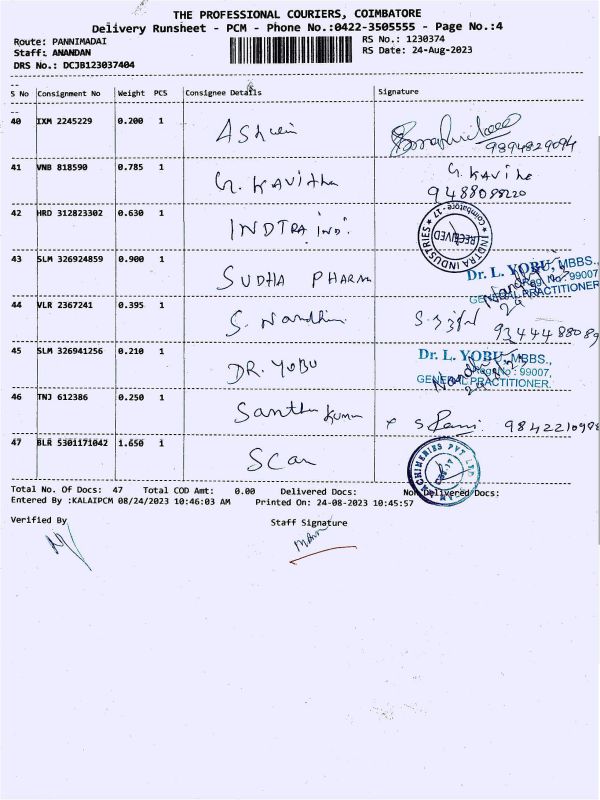 THE PROFESSIONAL COURIERS, COIMBATORE
Delivery Runsheet - PCM - Phone No.:0422-3505555 - Page No.:4
Route: PANNIMADAI
RS No.: 1230374
Staff: ANANDAN
RS Date: 24-Aug-2023
DRS No.: DCJB123037404
S No Consignment No Weight PCS Consignee Details Signature
40 IXM 2245229 0.200 1
9894829094
41 VNB 818590 0.785 1 G. KAVITHA G. KAVITHA
42 HRD 312823302 0.630 1 INDTRA IND.
INDTRA INDUSTRIES ★ Coimbatore - 17 ★
RECEIVED
43 SLM 326924859 0.900 1 SUDHA PHARM
Dr. L. YOBU, MBBS.,
Reg No: 99007
GENERAL PRACTITIONER
44 VLR 2367241 0.395 1 S. Nandhini
9344488089
45 SLM 326941256 0.210 1 DR. YOBU
Dr. L. YOBU, MBBS.,
Reg No: 99007,
GENERAL PRACTITIONER.
46 TNJ 612386 0.250 1 Santhu kumar
47 BLR 5301171042 1.650 1 Scan
MACHINERIES PVT LTD
Total No. Of Docs: 47 Total COD Amt: 0.00 Delivered Docs: Non Delivered Docs:
Entered By :KALAIPCM 08/24/2023 10:46:03 AM Printed On: 24-08-2023 10:45:57
Verified By
Staff Signature